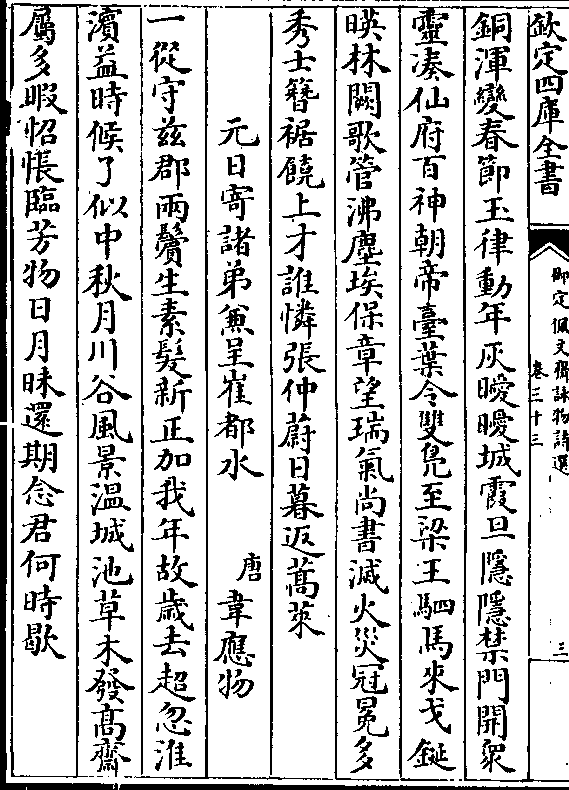 欽定四庫全書
御定佩文齋詠物詩選
卷三十三
三
銅渾變春節玉律動年灰曖曖城霞旦隱隱禁門開衆
靈湊仙府百神朝帝臺葉令雙鳬至梁王駟馬來戈鋋
暎林闕歌管沸塵埃保章望瑞氣尚書滅火災冠冕多
秀士簪裾饒上才誰憐張仲蔚日暮返蒿萊
元日寄諸弟兼呈崔都水
唐 韋應物
一從守兹郡兩鬢生素髮新正加我年故歲去超忽淮
濆益時候了似中秋月川谷風景溫城池草木發髙齋
屬多暇惆悵臨芳物日月昧還期念君何時歇